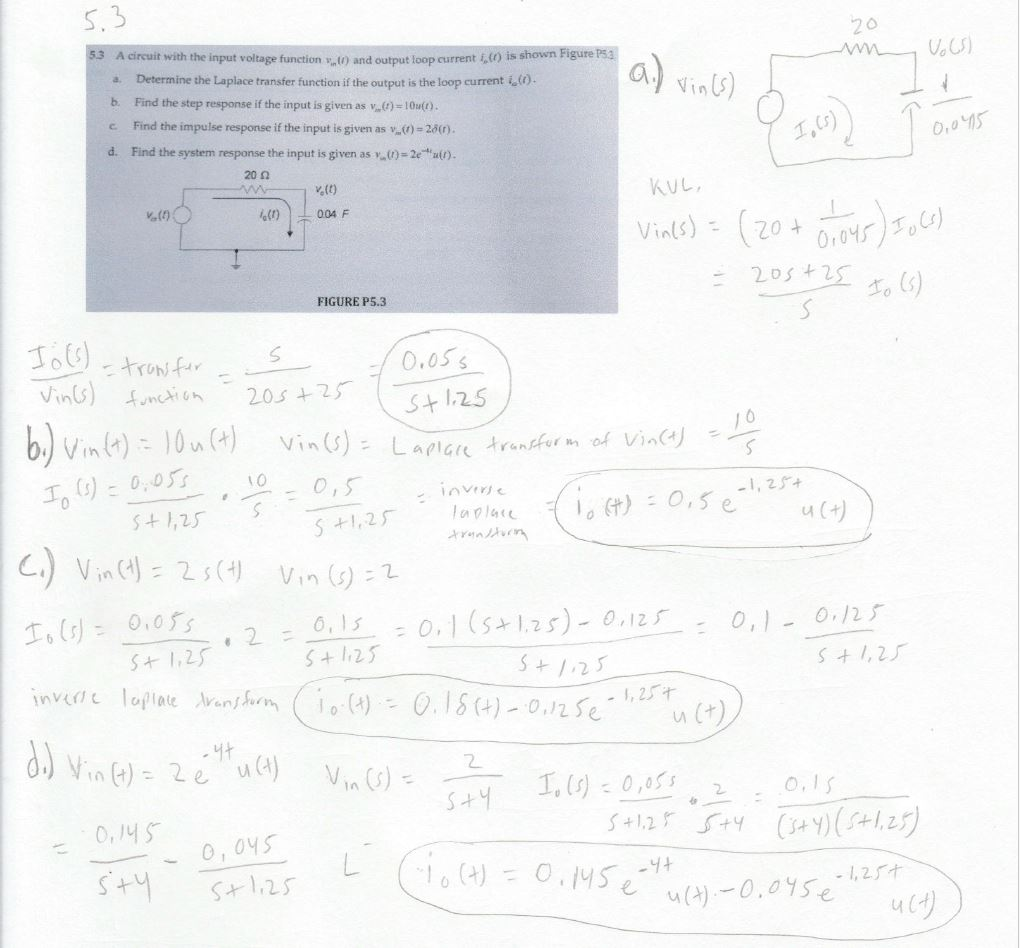 5.3
5.3 A circuit with the input voltage function v_in(t) and output loop current i_o(t) is shown Figure P5.3
a. Determine the Laplace transfer function if the output is the loop current i_o(t).
b. Find the step response if the input is given as v_in(t) = 10u(t).
c. Find the impulse response if the input is given as v_in(t) = 2δ(t).
d. Find the system response the input is given as v_in(t) = 2e^-4t u(t).
20 Ω
V_o(t)
V_in(t)
i_o(t)
0.04 F
FIGURE P5.3
a.)
20
Vin(s)
Vo(s)
Io(s)
1/0.04s
KVL,
Vin(s) = (20 + 1/0.04s) Io(s)
= 20s+25/s Io(s)
Io(s)/Vin(s) = transfer function = s/20s+25 = 0.05s/s+1.25
b.) Vin(t) = 10u(t) Vin(s) = Laplace transform of Vin(t) = 10/s
Io(s) = 0.05s/s+1.25 · 10/s = 0.5/s+1.25 = inverse laplace transform = io(t) = 0.5e^-1.25t u(t)
c.) Vin(t) = 2δ(t) Vin(s) = 2
Io(s) = 0.05s/s+1.25 · 2 = 0.1s/s+1.25 = 0.1(s+1.25)-0.125/s+1.25 = 0.1 - 0.125/s+1.25
inverse laplace transform io(t) = 0.1δ(t) - 0.125e^-1.25t u(t)
d.) Vin(t) = 2e^-4t u(t) Vin(s) = 2/s+4 Io(s) = 0.05s/s+1.25 · 2/s+4 = 0.1s/(s+4)(s+1.25)
= 0.145/s+4 - 0.045/s+1.25 L^- io(t) = 0.145e^-4t u(t) - 0.045e^-1.25t u(t)